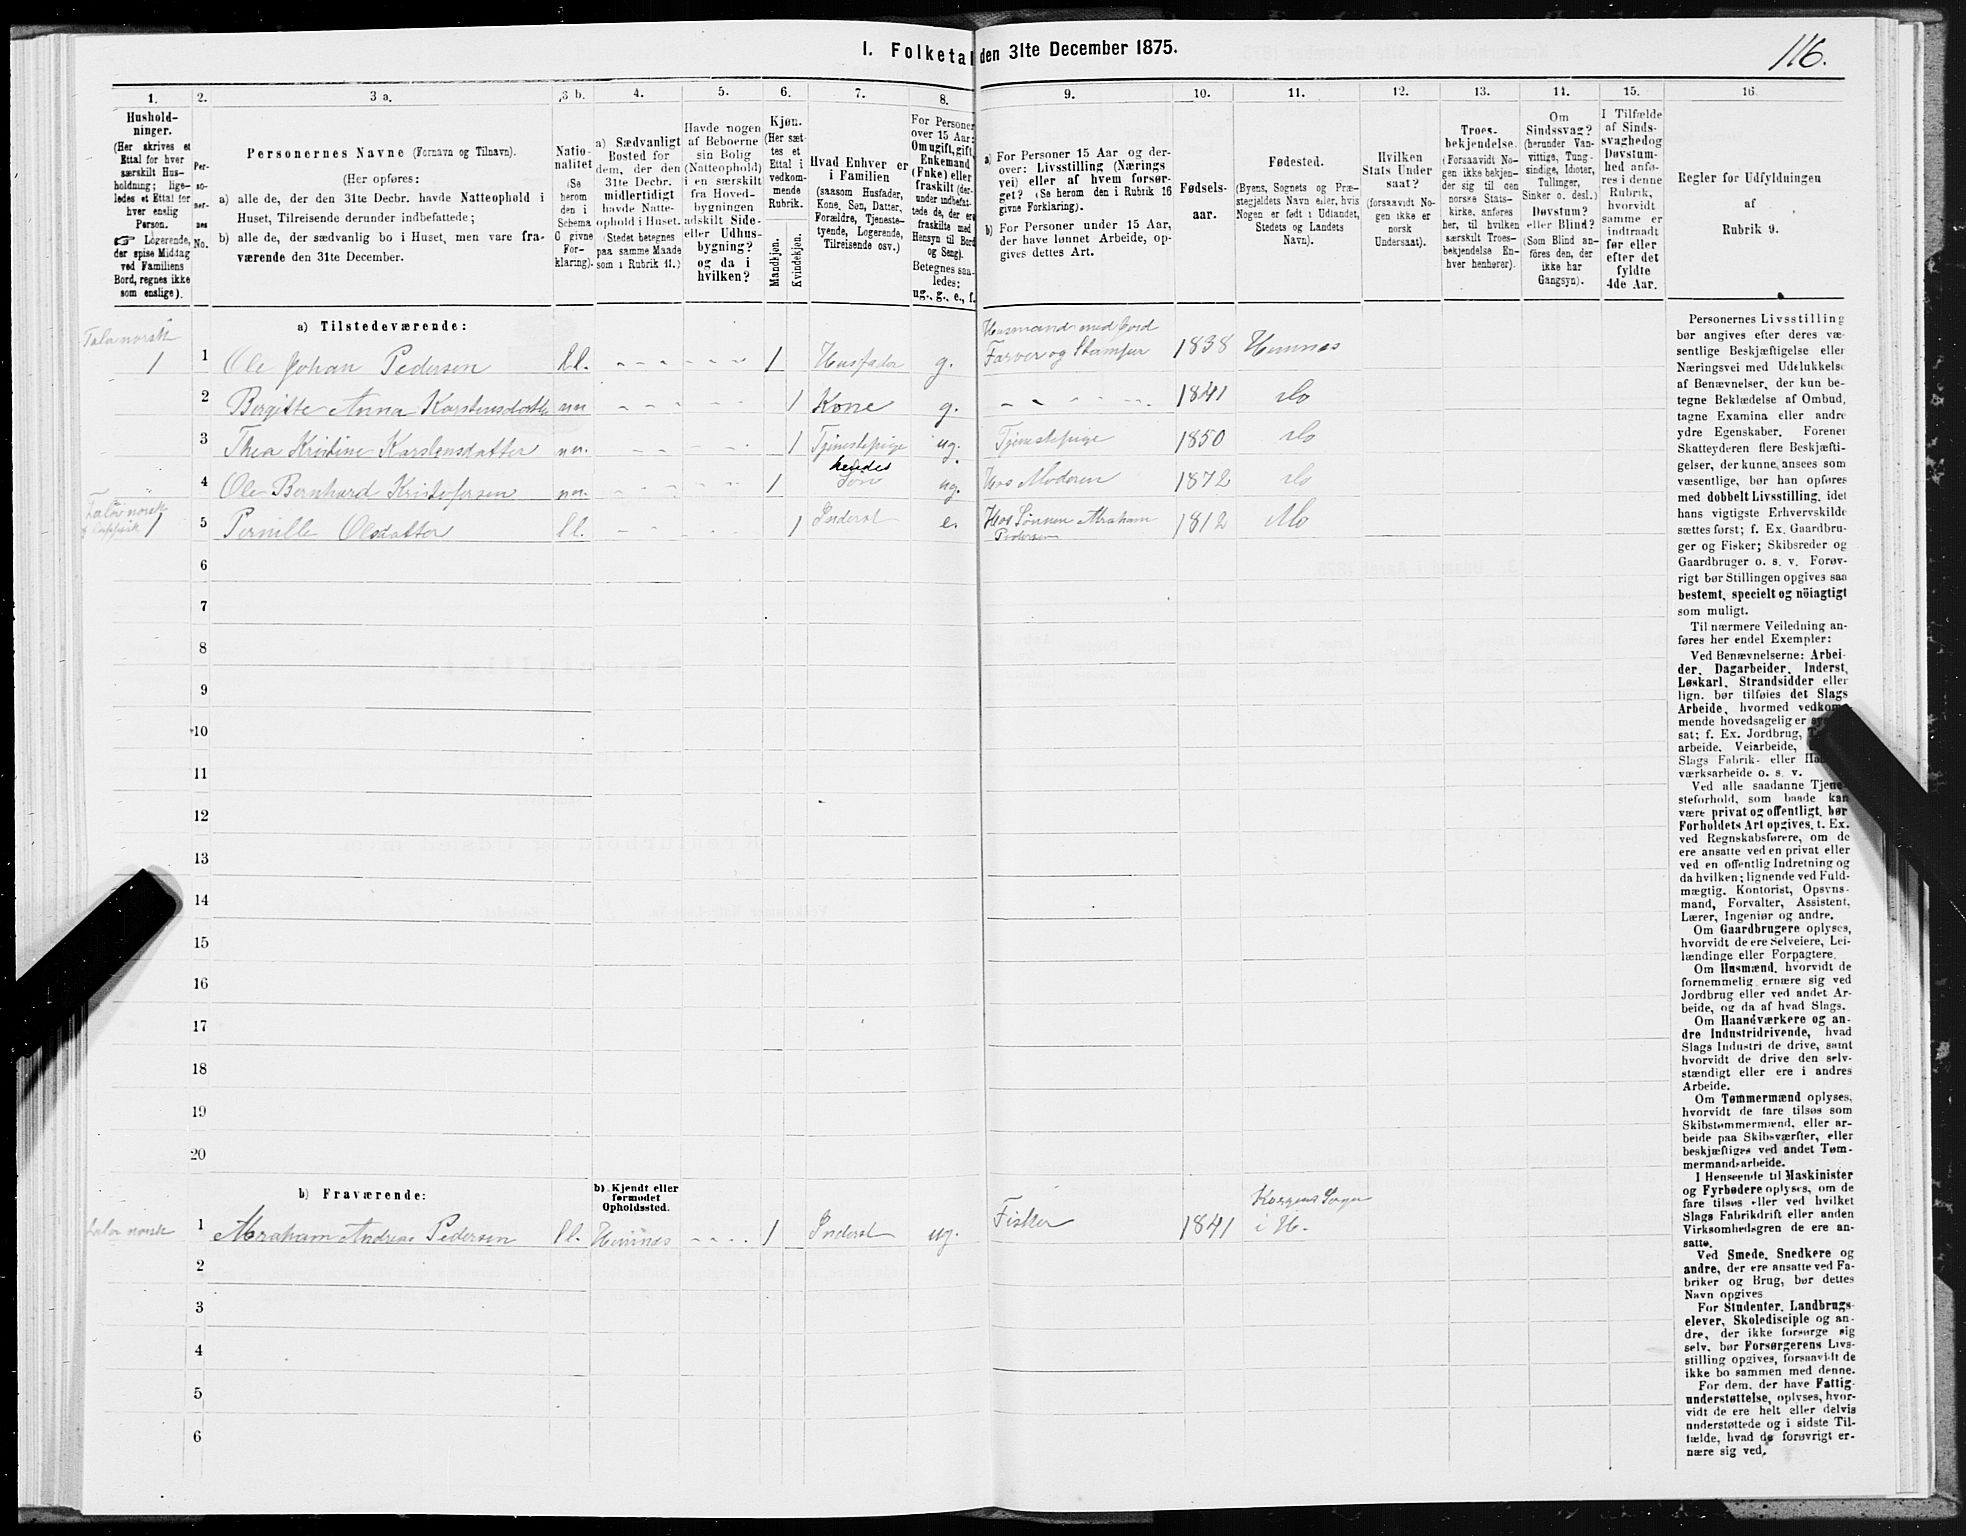 116.
I. Folketal den 31te December 1875.
1.
Hushold-
ninger.
(Her skrives et
Ettal for hver
særskilt Hus-
holdning; lige-
ledes et Ettal for
hver enslig
Person.
☞ Logerende,
der spise Middag
ved Familiens
Bord, regnes ikke
som enslige).
2.
Per-
so-
ner-
nes
No.
3 a.
Personernes Navne (Fornavn og Tilnavn).
(Her opføres:
a) alle de, der den 31te Decbr. havde Natteophold i
Huset, Tilreisende derunder indbefattede;
b) alle de, der sædvanlig bo i Huset, men vare fra-
værende den 31te December.
3 b.
Natio-
nalitet
(Se
herom
den i
Schema
C givne
For-
klaring).
4.
a) Sædvanligt
Bosted for
dem, der den
31te Decbr.
midlertidigt
havde Natte-
ophold i Huset.
(Stedet betegnes
paa samme Maade
som i Rubrik 11.)
5.
Havde nogen
af Beboerne
sin Bolig
(Natteophold)
i en særskilt
fra Hoved-
bygningen
adskilt Side-
eller Udhus-
bygning?
og da i
hvilken?
6.
Kjøn.
(Her sæt-
tes et
Ettal i
vedkom-
mende
Rubrik.
Mandkjøn.
Kvindekjøn.
7.
Hvad Enhver er
i Familien
(saasom Husfader,
Kone, Søn, Datter,
Forældre, Tjeneste-
tyende, Logerende,
Tilreisende osv.)
8.
For Personer
over 15 Aar:
Om ugift, gift,
Enkemand
(Enke) eller
fraskilt (der-
under indbefat-
tede de, der ere
fraskilte med
Hensyn til Bord
og Seng).
Betegnes saa-
ledes:
ug., g., e., f.
9.
a) For Personer 15 Aar og der-
over: Livsstilling (Nærings-
vei) eller af hvem forsør-
get? (Se herom den i Rubrik 16
givne Forklaring).
b) For Personer under 15 Aar,
der have lønnet Arbeide, op-
gives dettes Art.
10.
Fødsels-
aar.
11.
Fødested.
(Byens, Sognets og Præ-
stegjeldets Navn eller, hvis
Nogen er født i Udlandet,
Stedets og Landets
Navn).
12.
Hvilken
Stats Under
saat?
(forsaavidt No-
gen ikke er
norsk
Undersaat).
13.
Troes-
bekjendelse.
(Forsaavidt No-
gen ikke bekjen-
der sig til den
norske Stats-
kirke, anføres
her, til hvilken
særskilt Troes-
bekjendelse En-
hver henhører).
14.
Om
Sindssvag?
(herunder Van-
vittige, Tung-
sindige, Idioter,
Tullinger,
Sinker o. desl.)
Døvstum?
eller Blind?
(Som Blind an-
føres den, der
ikke har
Gangsyn).
15.
I Tilfælde
af Sinds-
svaghed og
Døvstum-
hed anfø-
res i denne
Rubrik,
hvorvidt
samme er
indtraadt
før eller
efter det
fyldte
4de Aar.
16.
Regler for Udfyldningen
af
Rubrik 9.
a) Tilstedeværende:
Taler norsk
1 1 Ole Johan Pedersen l.l. 1 Husfader g. Husmand med Jord Farver og Stamper 1838 Hemnæs
2 Bergitte Anna Karstensdatter nn 1 Kone g. 1841 do
3 Thea Kristine Karstensdatter nn. 1 Tjenestepige ug. Tjenestepige 1850 do
4 Ole Bernhard Kristofersen nn. 1 hendes Søn ug. Hos Moderen 1872 do
Taler norsk
1 5 Pernille Olsdatter l.l. 1 Inderst e. Hos Sønnen Abraham Pedersen 1812 Mo
6
7
8
9
10
11
12
13
14
15
16
17
18
19
20
b) Fraværende:
b) Kjendt eller
formodet
Opholdssted.
Taler norsk 1 Abraham Andreas Pedersen l.l. Hemnæs 1 Inderst ug. Fisker 1841 Korgens Sogn i H.
2
3
4
5
6
Personernes Livsstilling
bør angives efter deres væ-
sentlige Beskjæftigelse eller
Næringsvei med Udelukkelse
af Benævnelser, der kun be-
tegne Beklædelse af Ombud,
tagne Examina eller andre
ydre Egenskaber. Forener
Skatteyderen flere Beskjæfti-
gelser, der kunne ansees som
væsentlige, bør han opføres
med dobbelt Livsstilling, idet
hans vigtigste Erhvervskilde
sættes først; f. Ex. Gaardbru-
ger og Fisker; Skibsreder og
Gaardbruger o. s. v. Forøv-
rigt bør Stillingen opgives saa
bestemt, specielt og nöiagtigt
som muligt.
Til nærmere Veiledning an-
føres her endel Exempler:
Ved Benævnelserne: Arbei-
der, Dagarbeider, Inderst,
Løskarl, Strandsidder eller
lign. bør tilføies det Slags
Arbeide, hvormed vedkom-
mende hovedsagelig er
sat; f. Ex. Jordbrug,
arbeide, Veiarbeide,
Slags Fabrik- eller
værksarbeide o. s. v.
Ved alle saadanne Tjene-
steforhold, som baade kan
være privat og offentligt, bør
Forholdets Art opgives, t. Ex.
ved Regnskabsførere, om de
ere ansatte ved en privat eller
ved en offentlig Indretning og
da hvilken; lignende ved Fuld-
mægtig, Kontorist, Opsyns-
mand, Forvalter, Assistent,
Lærer, Ingeniør og andre.
Om Gaardbrugere oplyses,
hvorvidt de ere Selveiere, Lei-
lændinge eller Forpagtere.
Om Husmænd, hvorvidt de
fornemmelig ernære sig ved
Jordbrug eller ved andet Ar-
beide, og da af hvad Slags.
Om Haandværkere og an-
dre Industridrivende, hvad
Slags Industri de drive, samt
hvorvidt de drive den selv-
stændigt eller ere i andres
Arbeide.
Om Tømmermænd oplyses,
hvorvidt de fare tilsøs som
Skibstømmermænd, eller ar-
beide paa Skibsværfter, eller
beskjæftiges ved andet Tøm-
mermandsarbeide.
I Henseende til Maskinister
og Fyrbødere oplyses, om de
fare tilsøs eller ved hvilket
Slags Fabrikdrift eller anden
Virksomhedsgren de ere an-
satte.
Ved Smede, Snedkere og
andre, der ere ansatte ved Fa-
briker og Brug, bør dettes
Navn opgives
For Studenter, Landbrugs-
elever, Skoledisciple og an-
dre, der ikke forsørge sig
selv, bør Forsørgerens Livs-
stilling opgives, forsaavidt de
ikke bo sammen med denne.
For dem, der have Fattig-
understøttelse, oplyses, hvor-
vidt de ere helt eller delvis
understøttede og i sidste Til-
fælde, hvad de forøvrigt er-
nære sig ved.